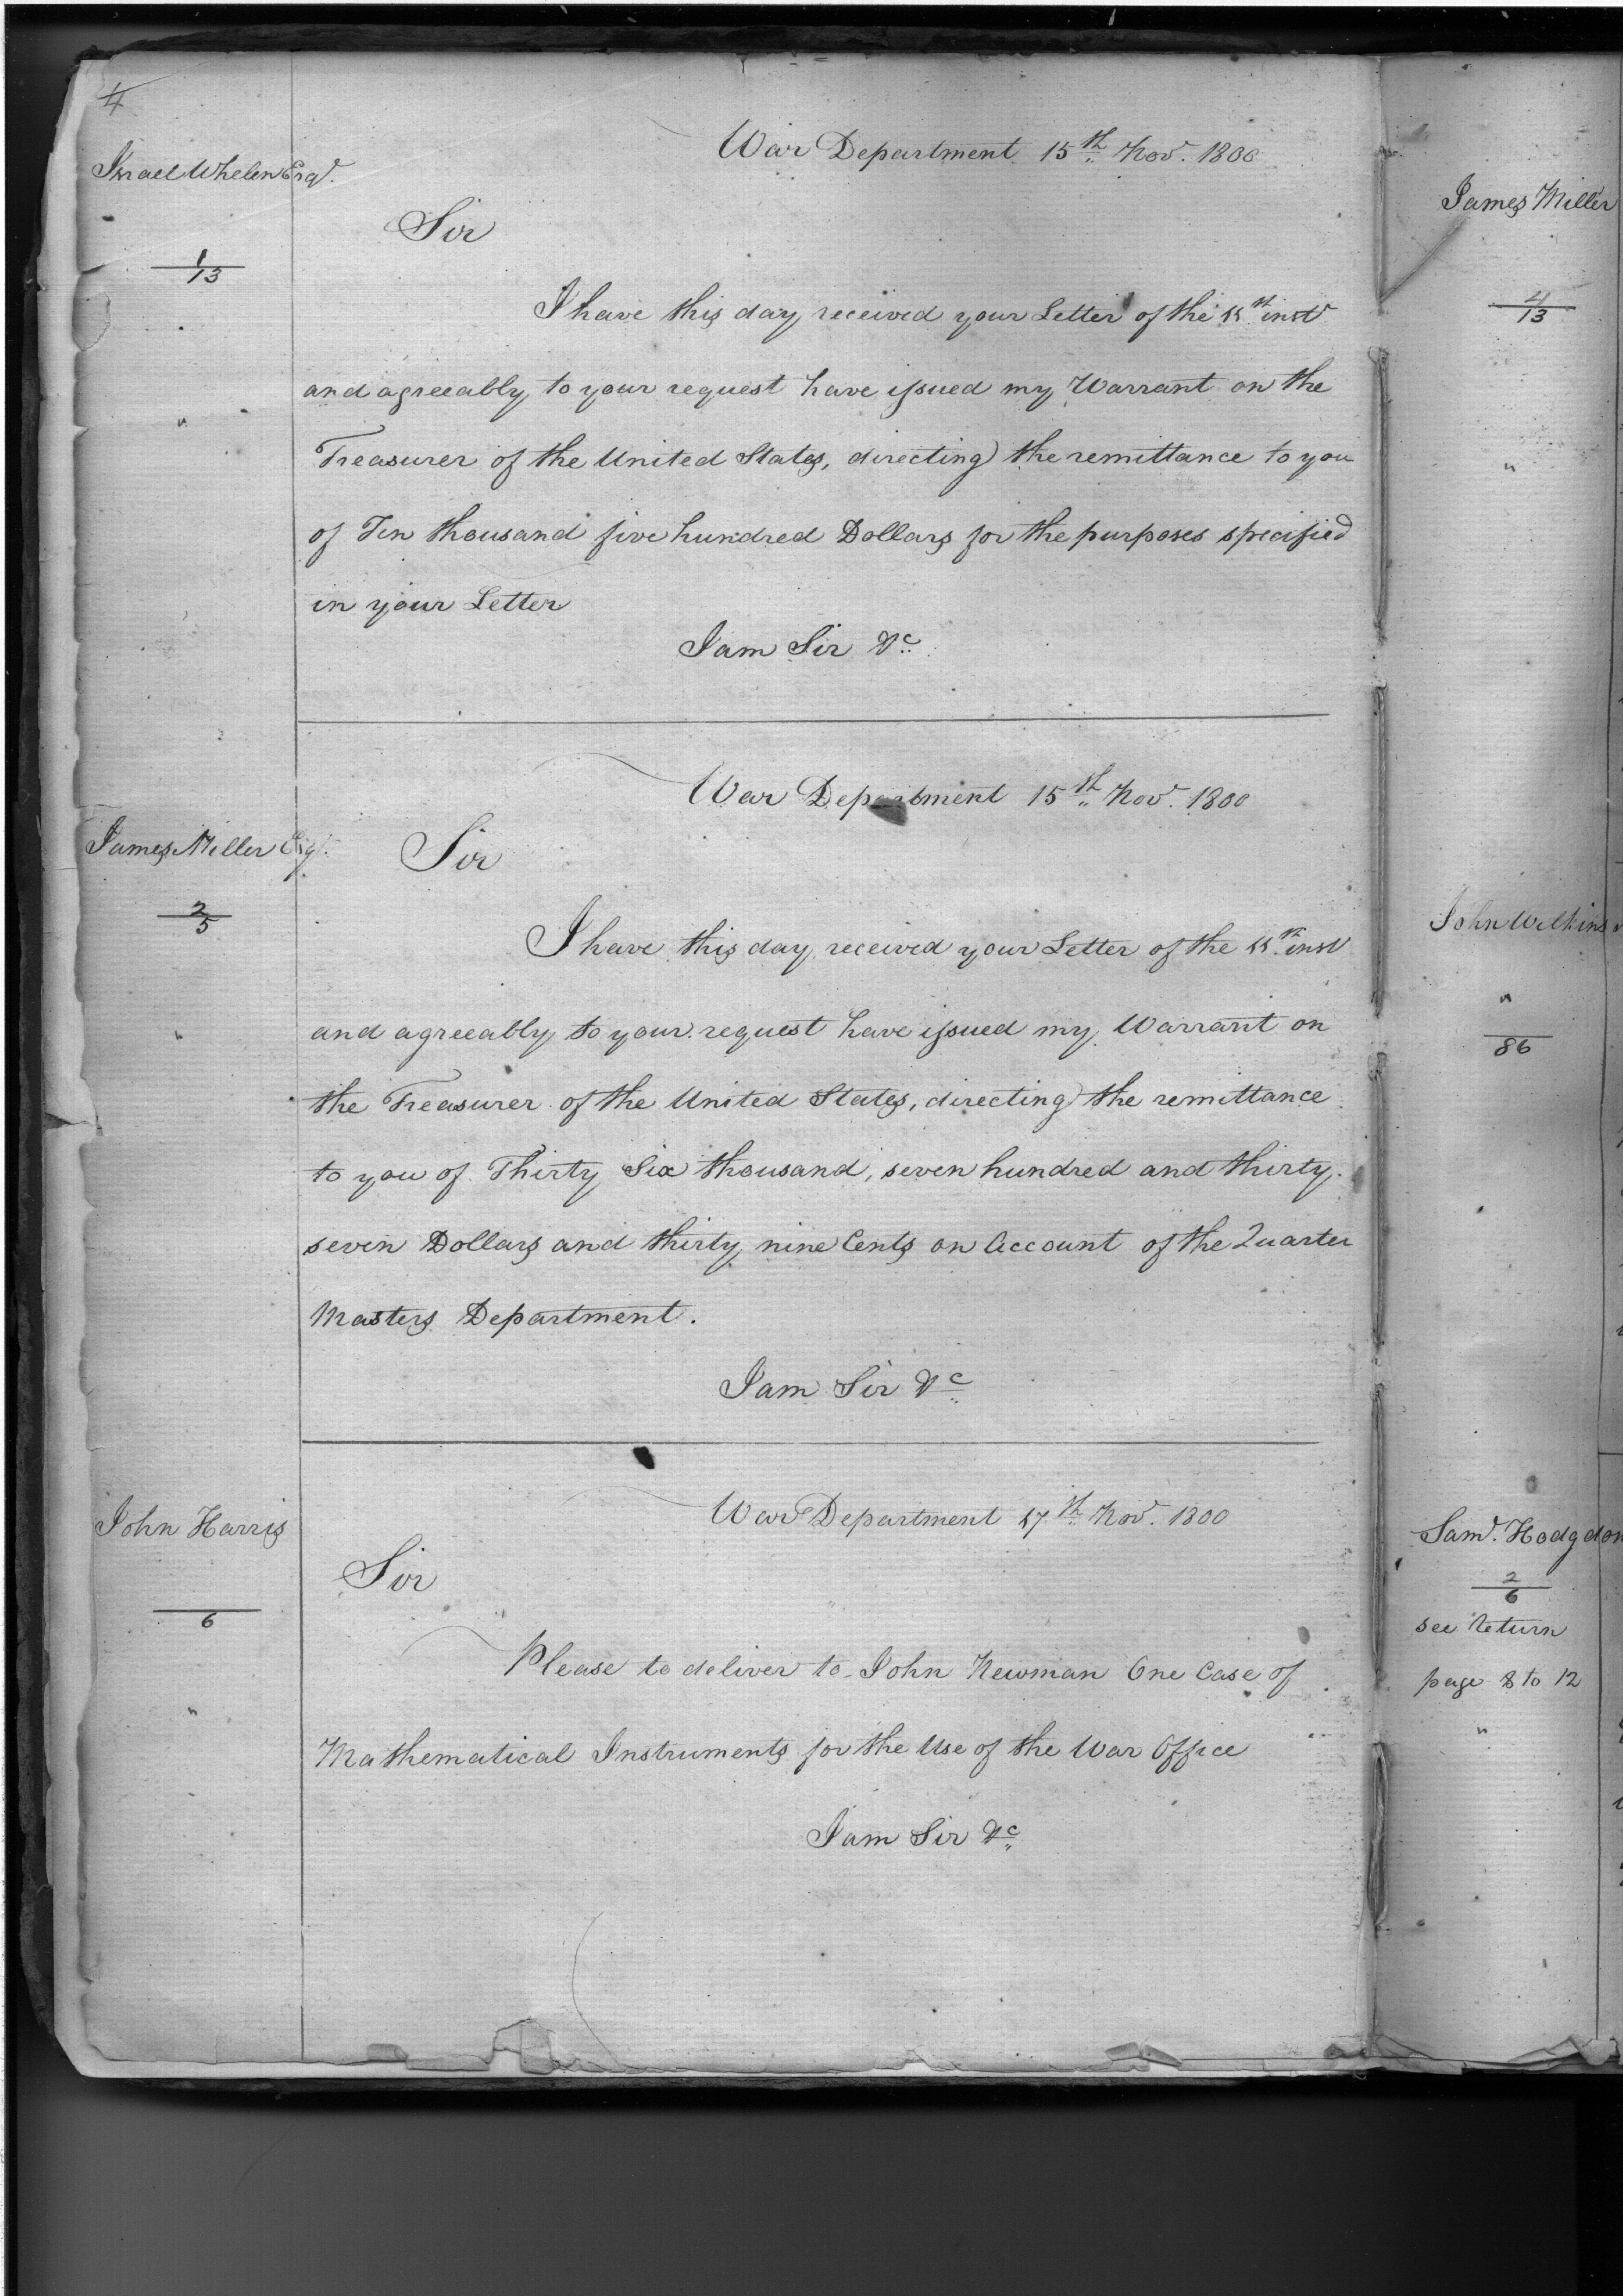 4
Israel Whelen Esqr.
1
13
War Department 15th Novr. 1800
Sir
I have this day received your Letter of the inst
and agreeably to your request have issued my Warrant on the
Treasurer of the United States, directing the remittance to you
of Ten thousand five hundred Dollars for the purposes specified
in your Letter
I am Sir &c
James Miller Esqr.
2
5
War Department 15th Novr. 1800
Sir
I have this day received your Letter of the inst
and agreeably to your request have issued my Warrant on
the Treasurer of the United States, directing the remittance
to you of Thirty Six thousand, seven hundred and thirty
seven Dollars and thirty nine Cents on Account of the Quarter
Masters Department.
I am Sir &c
John Harris
6
War Department 17th Novr. 1800
Sir
Please to deliver to John Newman One Case of
Mathematical Instruments for the Use of the War Office
I am Sir &c
James Miller
4
13
John Wilkins
"
86
Saml. Hodgdon
2
6
see return
page 8 to 12